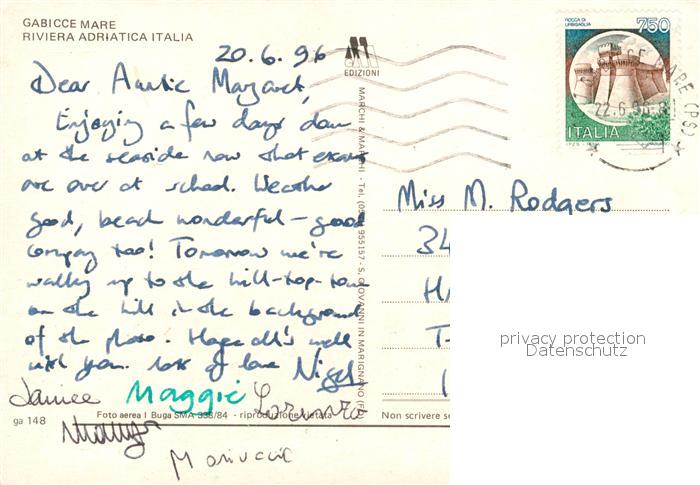 GABICCE MARE
RIVIERA ADRIATICA ITALIA
20.6.96
Dear Auntie Margaret,
Enjoying a few days down
at the seaside now that exams
are over at school. Weather
good, beach wonderful – good
company too! Tomorrow we're
walking up to the hill-top-town
on the hill in the background
of the photo. Hope all's well
with you. Lots of love Nigel
Janice Maggie Lorenzo
ga 148 Foto aerea I Buga SMA 338/84 - riproduzione vietata
EDIZIONI
MARCHI & MARCHI - Tel. 955157 - S. GIOVANNI IN MARIGNANO
ROCCA DI URBISAGLIA
750
ITALIA
22.6.96
Miss M. Rodgers
34
H
T
Non scrivere
privacy protection
Datenschutz